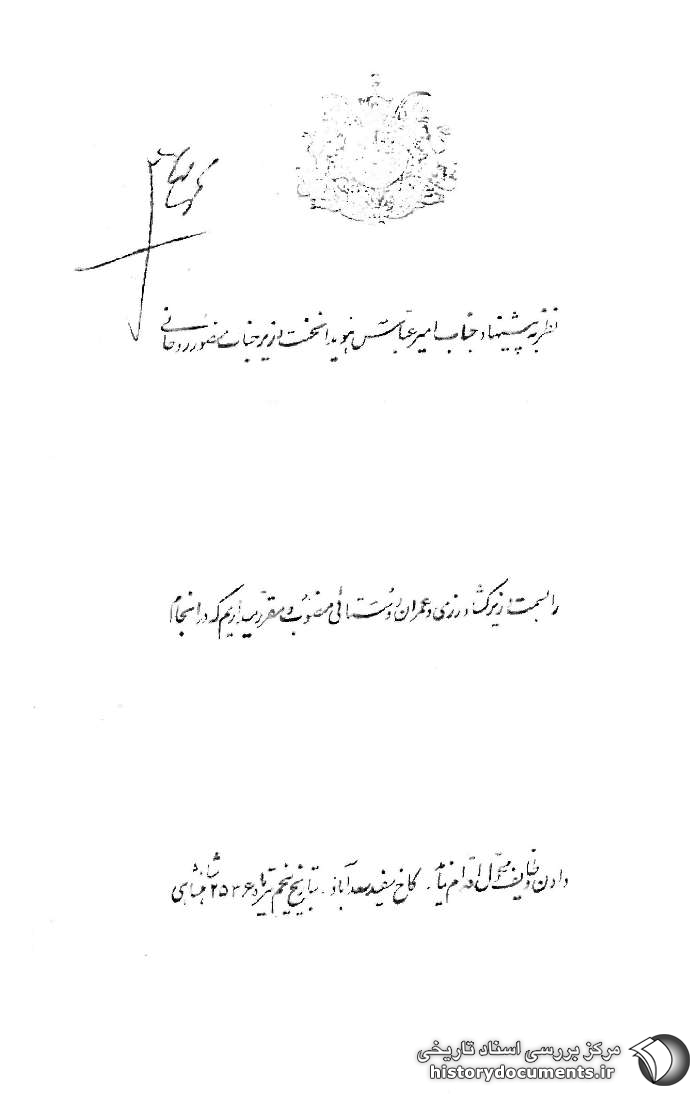 نظر به پیشنهاد جناب امیرعباس هویدا نخست وزیر جناب منصور روحانی
را بسمت وزیر کشاورزی و عمران روستائی منصوب و مقرر میداریم که در انجام
دادن وظایف محول اقدام نماید. کاخ سفید سعدآباد. بتاریخ پنجم تیرماه ۲۵۳۶ شاهنشاهی
مرکز بررسی اسناد تاریخی
historydocuments.ir